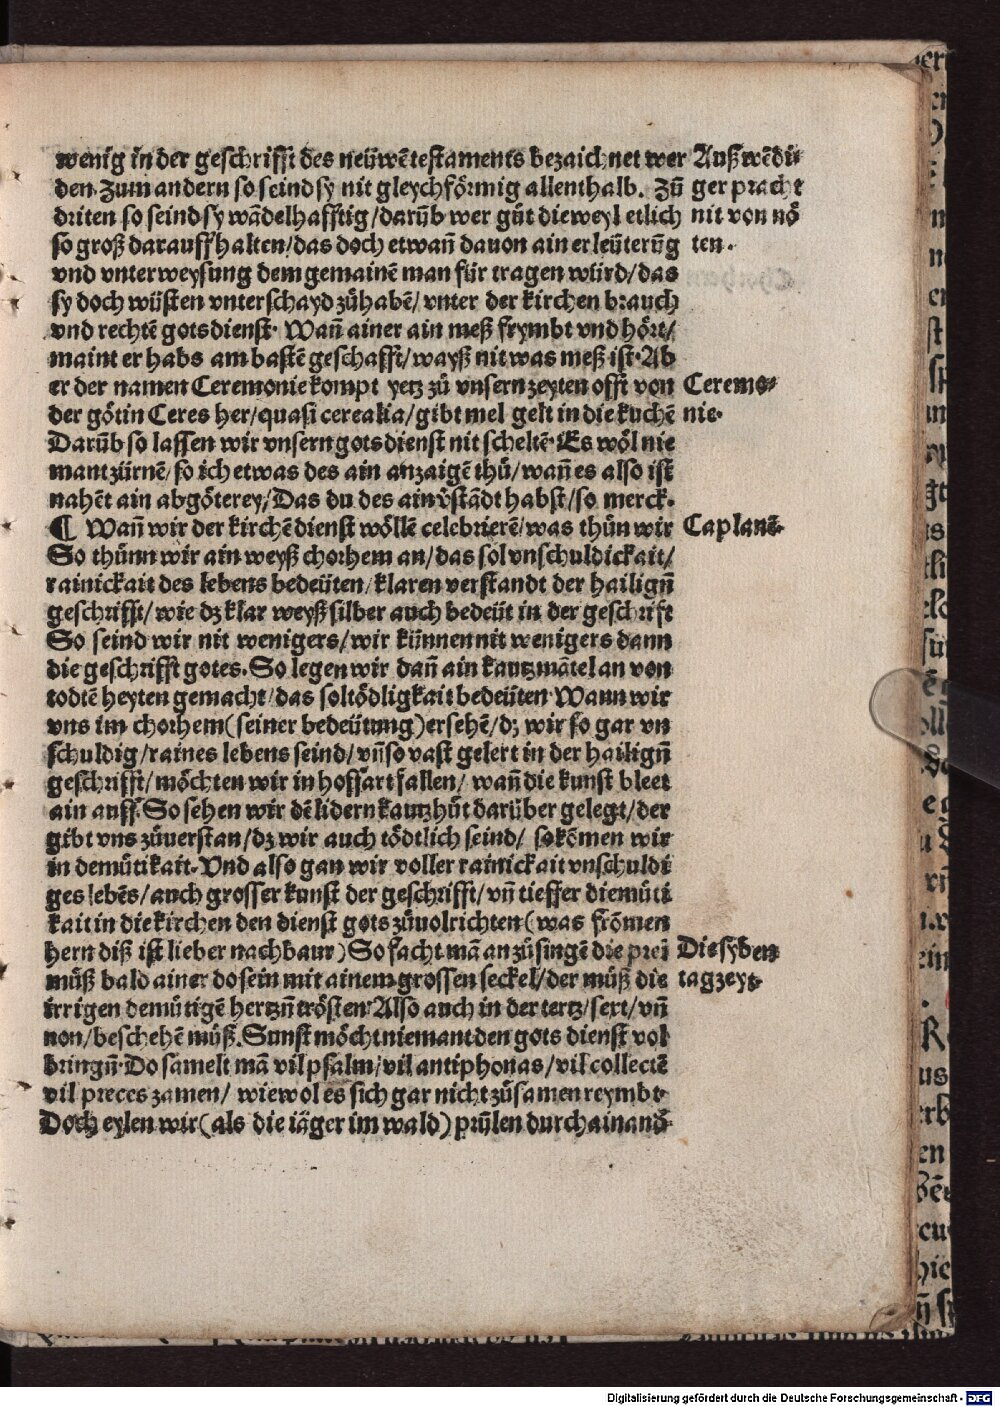 wenig in der geschrifft des neüwē testaments bezaichnet wer
den. Zum andern so seind sy nit gleychförmig allenthalb. Zů
driten so seind sy wādelhafftig/darūb wer gůt dieweyl etlich
so groß darauff halten/das doch etwañ dauon ain erleüterūg
vnd vnterweysung dem gemainē man für tragen würd/das
sy doch wüsten vnterschayd zůhabē/vnter der kirchen brauch
vnd rechtē gots dienst. Wañ ainer ain meß frymbt vnd hört/
maint er habs am bastē geschafft/wayß nit was meß ist. Ab
er der namen Ceremonie kompt yetz zů vnsern zeyten offt von
der götin Ceres her/quasi cerealia/gibt mel gelt in die kuchē
Darūb so lassen wir vnsern gots dienst nit scheltē. Es wöl nie
mant zürnē/so ich etwas des ain anzaigē thů/wañ es also ist
nahēt ain abgöterey/Das du des ain v̄stādt habst/so merck.
¶ Wañ wir der kirchē dienst wöllē celebrierē/was thůn wir
So thůnn wir ain weyß chorhem an/das sol vnschuldickait/
rainickait des lebens bedeüten/klaren verstandt der hailigñ
geschrifft/wie dz klar weyß silber auch bedeüt in der geschrift
So seind wir nit wenigers/wir künnen nit wenigers dann
die geschrifft gotes. So legen wir dañ ain kautzmātel an von
todtē heyten gemacht/das sol tödligkait bedeüten. Wann wir
vns im chorhem (seiner bedeütung) ersehē/dz wir so gar vn
schuldig/raines lebens seind/vñ so vast gelert in der hailigñ
geschrifft/möchten wir in hoffart fallen/wañ die kunst bleet
ain auff. So sehen wir dē lidern kautzhůt darüber gelegt/der
gibt vns zůuerstan/dz wir auch tödtlich seind/so kōmen wir
in demůtikait. Vnd also gan wir voller rainickait vnschuldi
ges lebēs/auch grosser kunst der geschrifft/vñ tieffer diemůti
kait in die kirchen den dienst gots zůuolrichten (was frōmen
hern diß ist lieber nachbaur) So facht mā an zůsingē die prei
můß bald ainer do sein mit ainem grossen seckel/der můß die
irrigen demůtigē hertzñ trösten. Also auch in der tertz/sext/vñ
non/beschehē můß. Sunst möcht niemant den gots dienst vol
bringñ. Do samelt mā vil psalm/vil antiphonas/vil collectē
vil preces zamen/wiewol es sich gar nicht zůsamen reymbt.
Doch eylen wir (als die iäger im wald) prülen durch ainand̄
Außwēdi
ger pracht
nit von nö
ten.
Ceremo
nie.
Caplanē.
Die syben
tagzeyt.
Digitalisierung gefördert durch die Deutsche Forschungsgemeinschaft - DFG